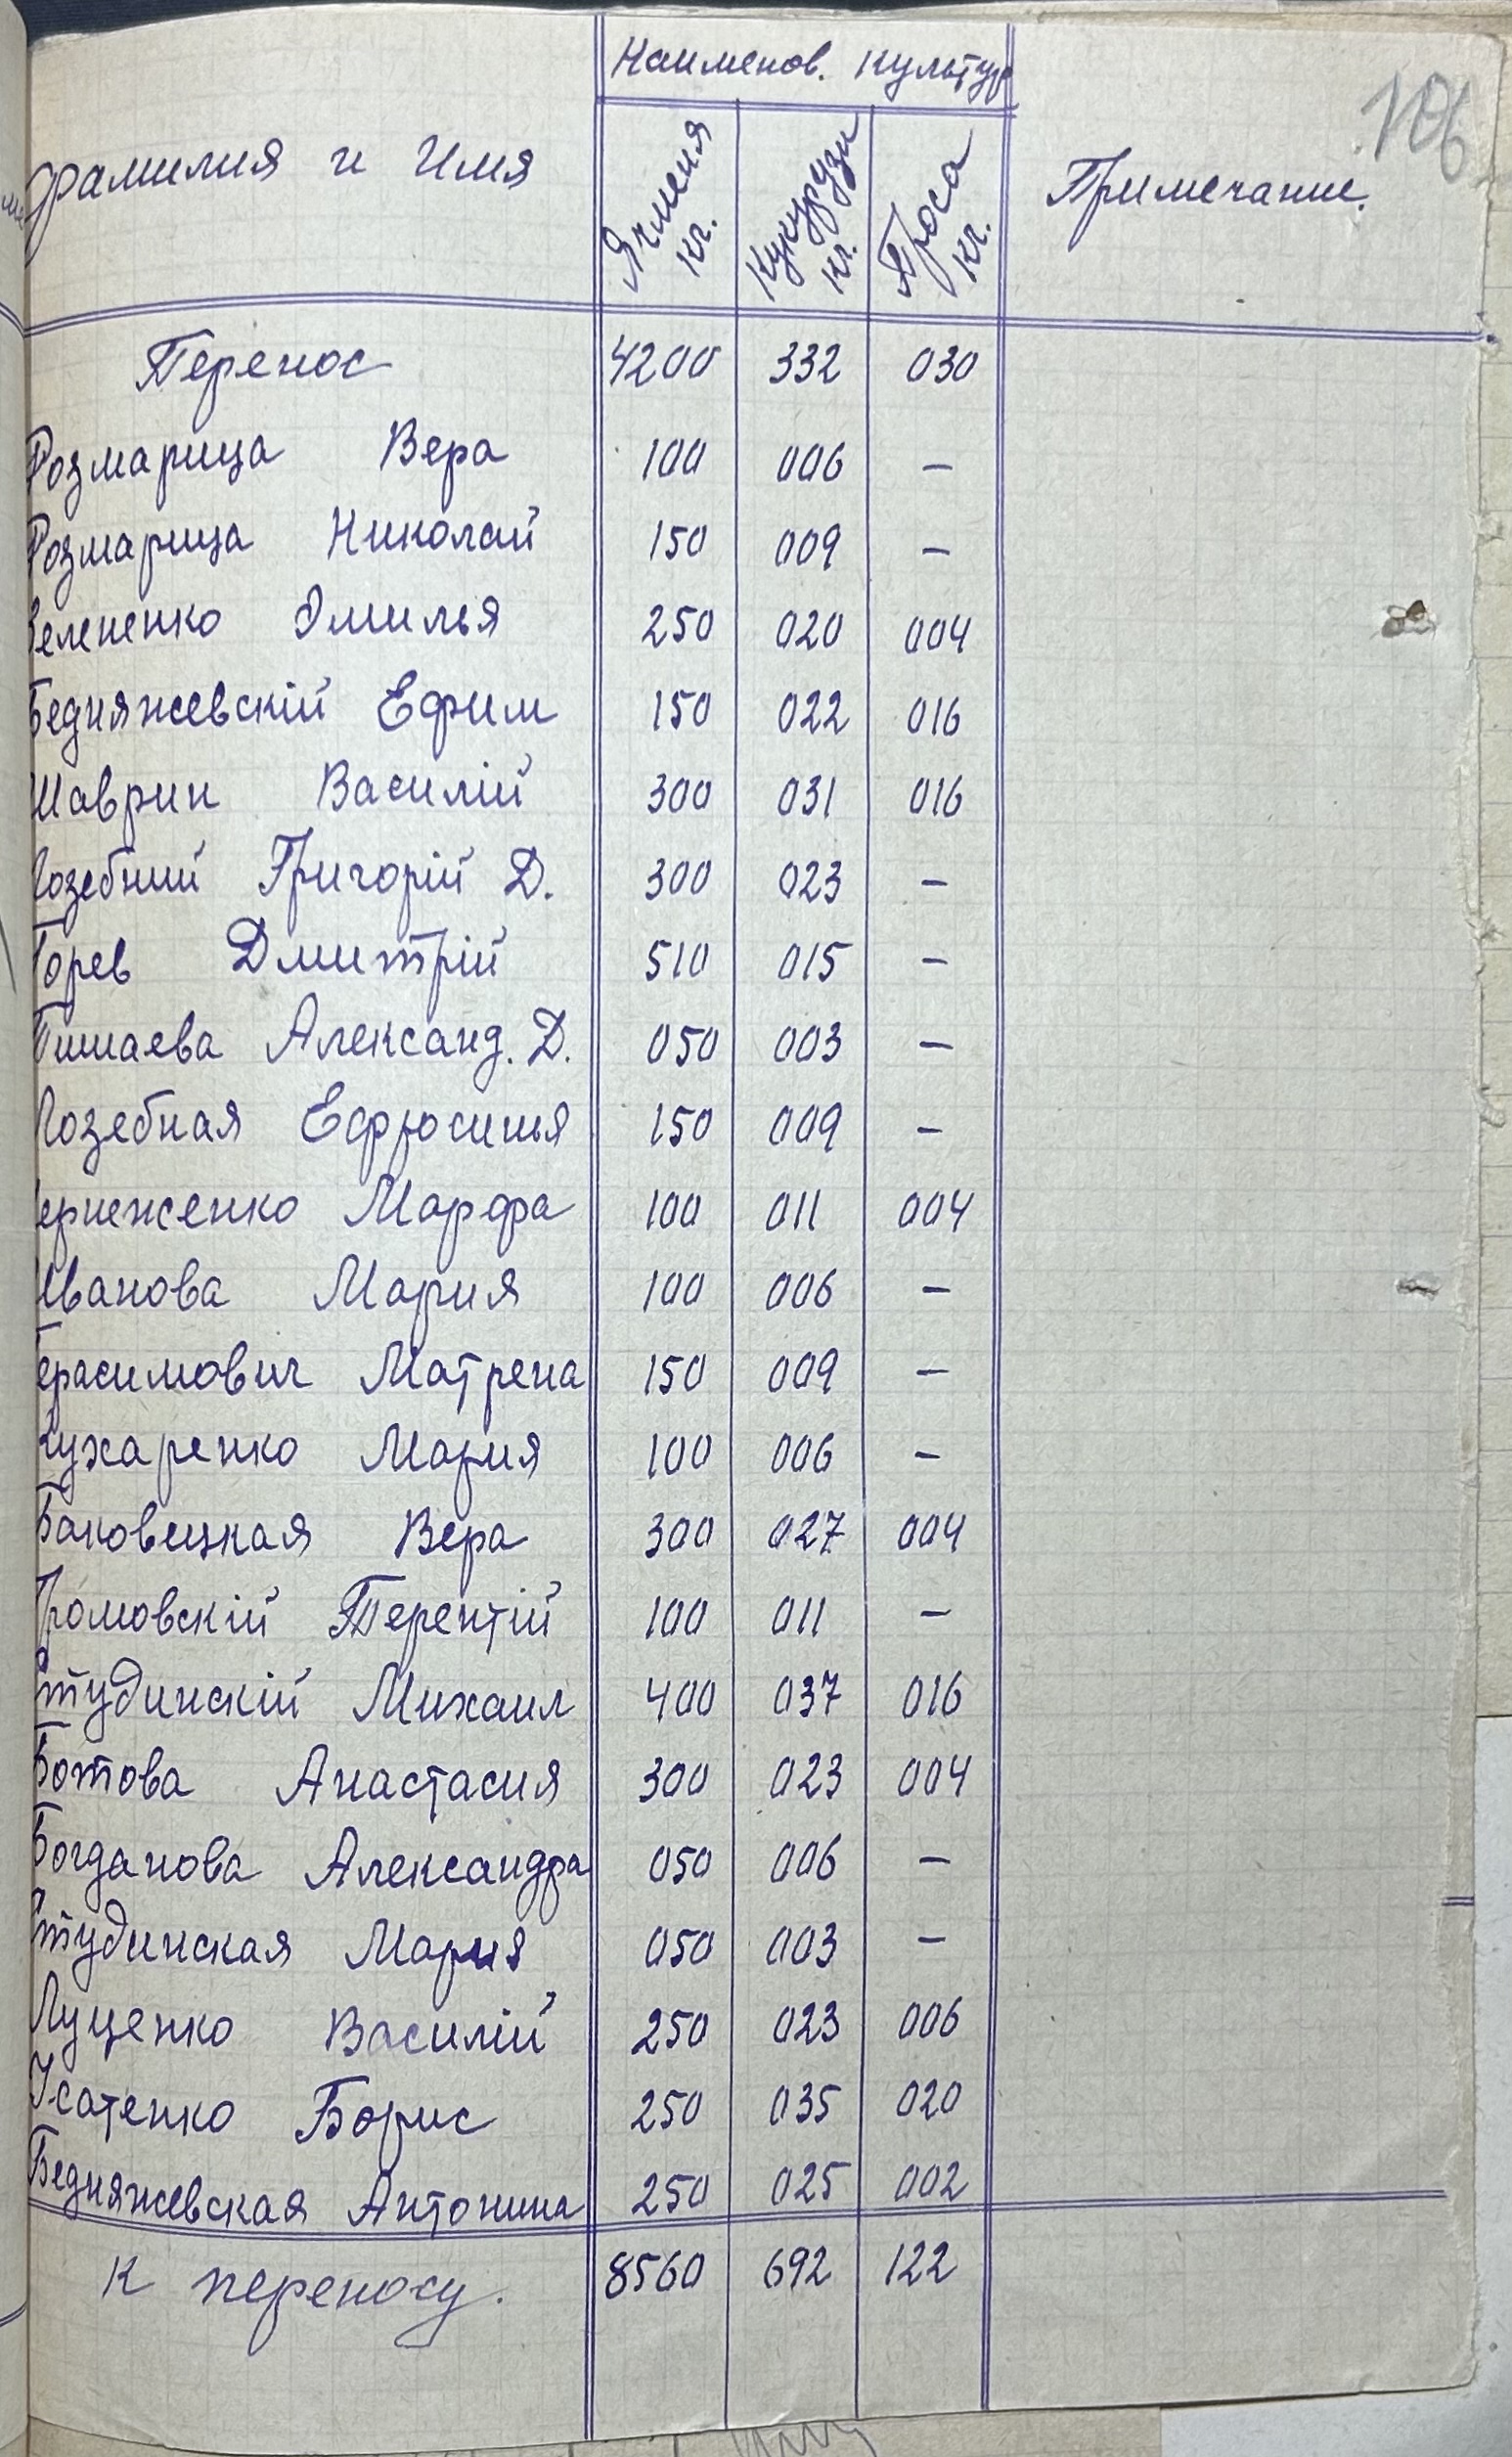 Наименов. культур
106
Фамилия и Имя Ячменя кг. Кукурузи кг. Проса кг. Примечание.
Перенос 4200 332 030
Розмарица Вера 100 006 —
Розмарица Николай 150 009 —
Зелененко Эмилья 250 020 004
Бедняжевскій Ефим 150 022 016
Шаврин Василій 300 031 016
Лозебний Григорій Д. 300 023 —
Горев Дмитрій 510 015 —
Александ. Д. 050 003 —
Лозебная Ефросинья 150 009 —
Марфа 100 011 004
Иванова Мария 100 006 —
Герасимович Матрена 150 009 —
Кухаренко Мария 100 006 —
Баковецкая Вера 300 027 004
Громовскій Терентій 100 011 —
Студинскій Михаил 400 037 016
Ботова Анастасия 300 023 004
Богданова Александра 050 006 —
Студинская Мария 050 003 —
Луценко Василій 250 023 006
Усатенко Борис 250 035 020
Бедняжевская Антонина 250 025 002
К переносу. 8560 692 122